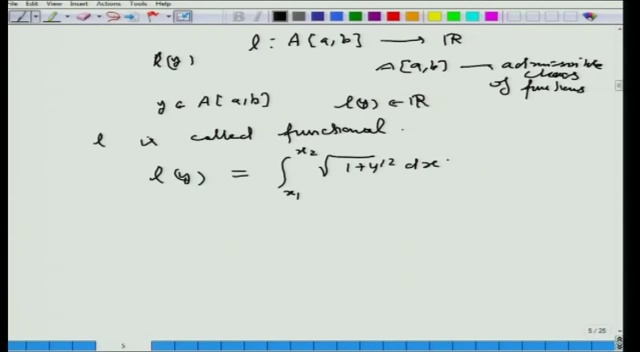 File Edit View Insert Actions Tools Help
l : A[a,b] → ℝ
l(y)
A[a,b] — admissible class of functions
y ∈ A[a,b] l(y) ∈ ℝ
l is called functional.
l(y) = ∫_{x₁}^{x₂} √(1+y'²) dx.
5/25
5